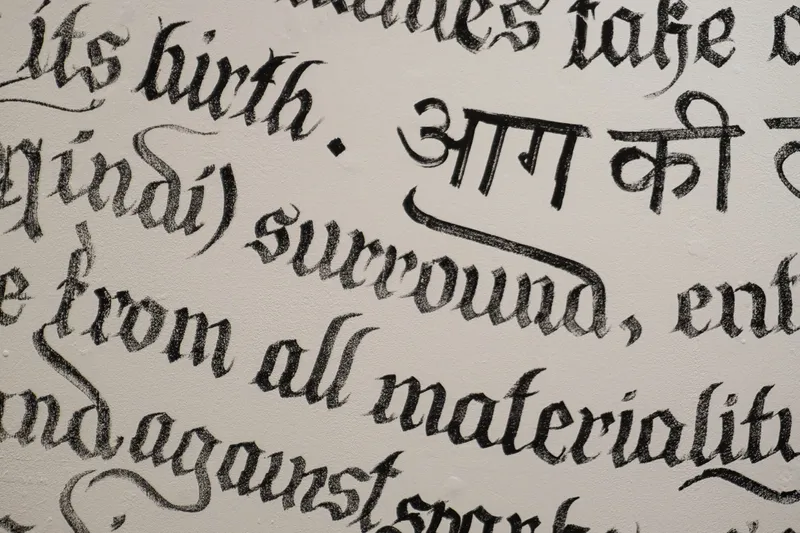 take
its birth. आग की
Hindi) surround,
from all materiality
and against